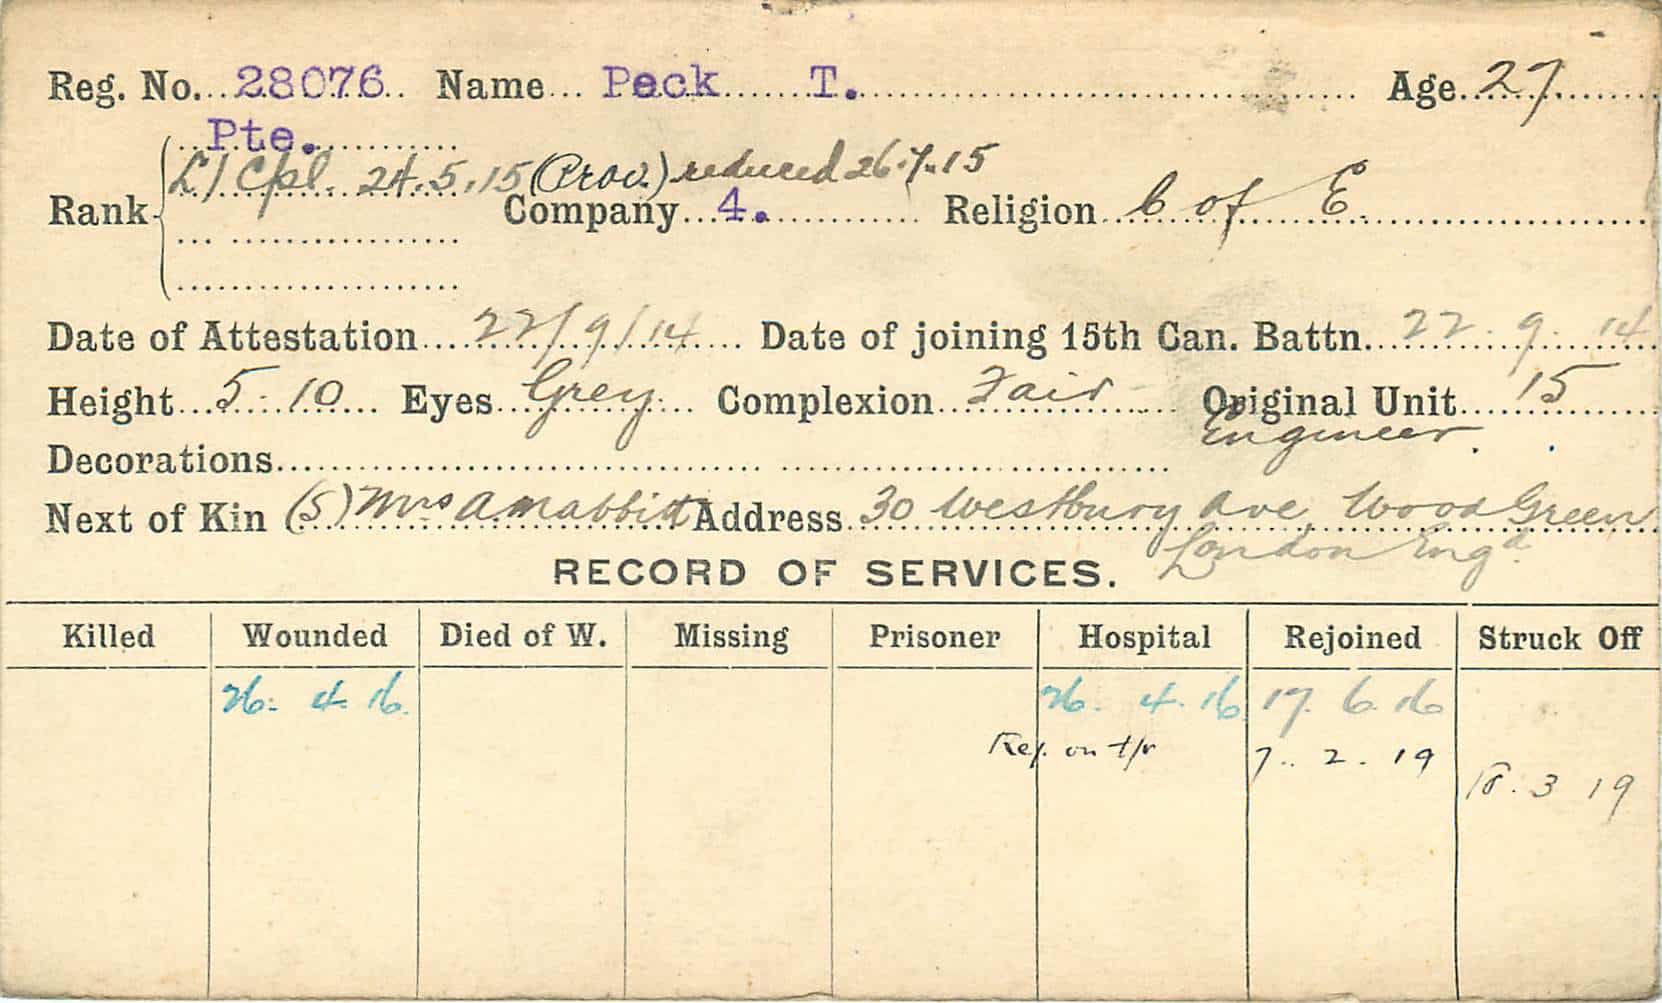 Reg. No. 28076 Name Peck T. Age 27
Pte.
L/Cpl. 24.5.15 (Prov.) reduced 26.7.15
Rank Company 4. Religion C of E.
Date of Attestation 22/9/14 Date of joining 15th Can. Battn. 22.9.14
Height 5.10 Eyes Grey. Complexion Fair Original Unit 15
Engineer.
Decorations
Next of Kin (S) Mrs A Mabbitt Address 30 Westbury Ave, Wood Green
London Engd.
RECORD OF SERVICES.
Killed Wounded Died of W. Missing Prisoner Hospital Rejoined Struck Off
26. 4. 16. 26. 4. 16 17. 6. 16
on 7. 2. 19
3 19